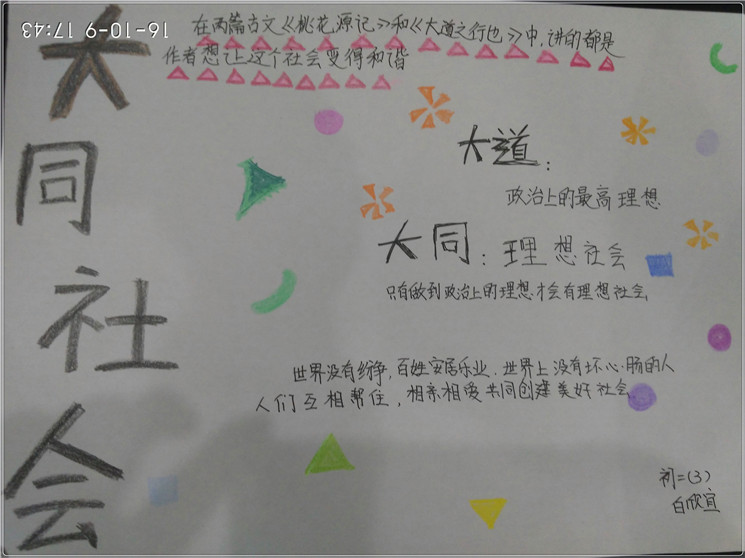 16-10-9 17:43
大同社会
在两篇古文《桃花源记》和《大道之行也》中,讲的都是
作者想让这个社会变得和谐
大道:
政治上的最高理想
大同:理想社会
只有做到政治上的理想才会有理想社会
世界没有纷争,百姓安居乐业.世界上没有坏心肠的人
人们互相帮住,相亲相爱共同创建美好社会
初二(3)
白欣宜